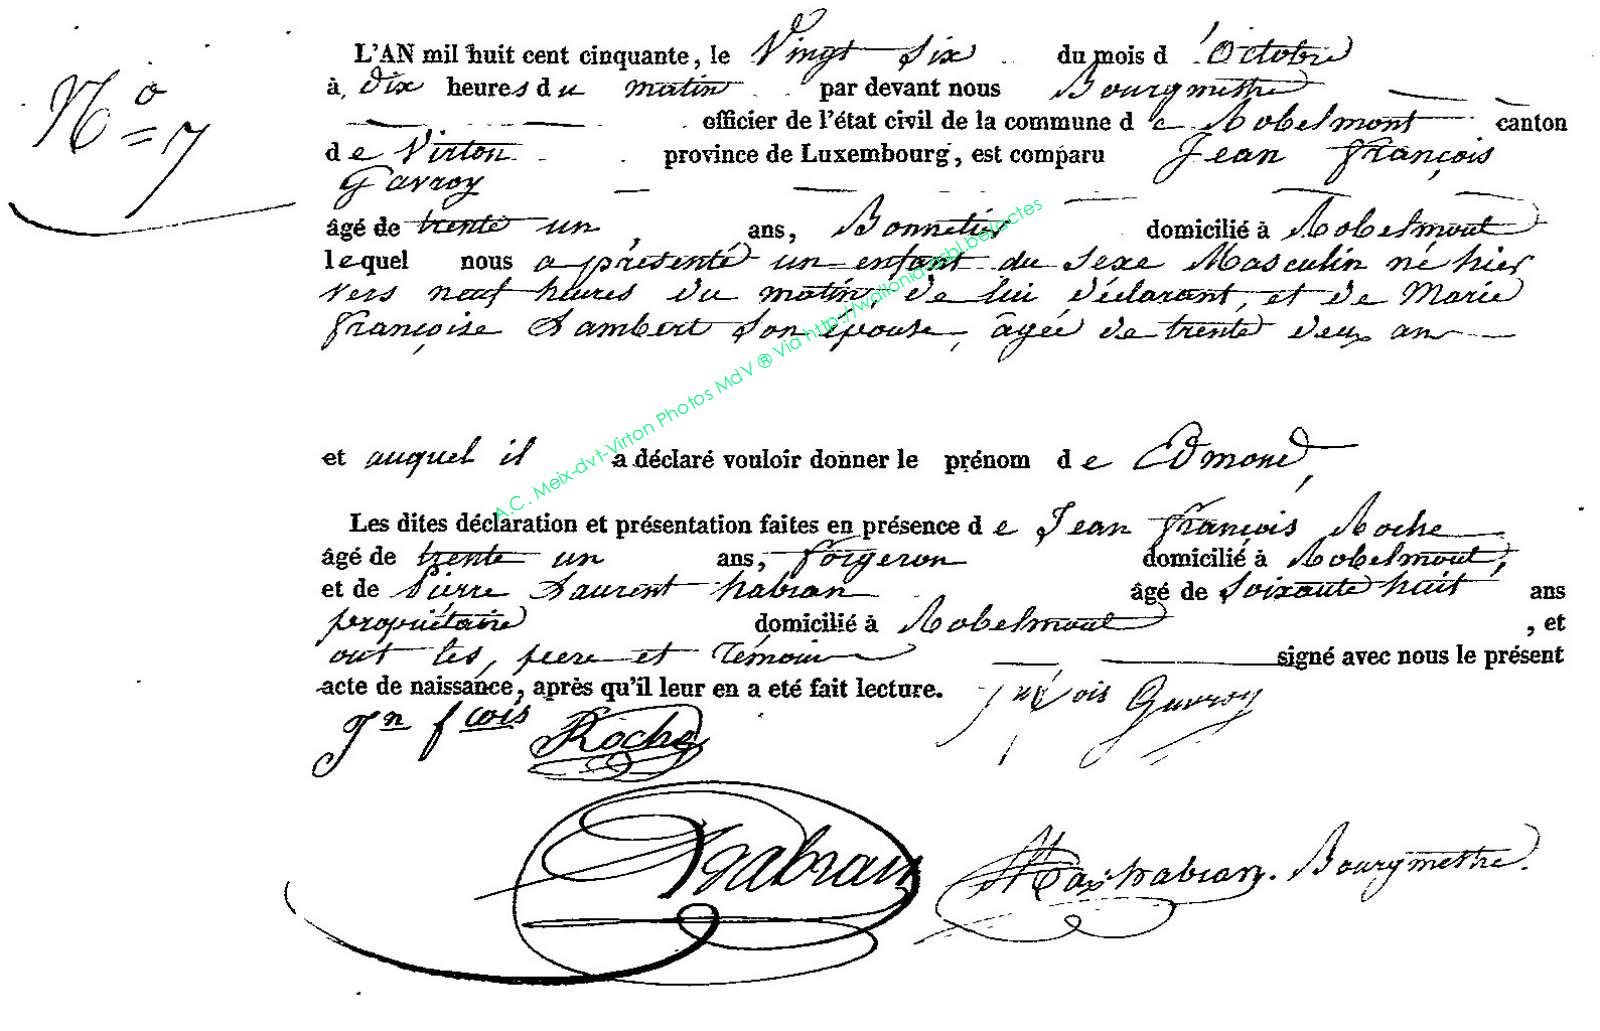 Nº = 7
L'AN mil huit cent cinquante, le Vingt Six du mois d'Octobre
à Dix heures du matin par devant nous Bourgmestre
officier de l'état civil de la commune de Robelmont canton
de Virton province de Luxembourg, est comparu Jean François
Gavroy
âgé de trente un ans, Bonnetier domicilié à Robelmont
lequel nous a présenté un enfant du Sexe Masculin né hier
vers neuf heures du matin, de lui déclarant, et de Marie
Françoise Lambert Son épouse, âgée de trente deux an
et auquel il a déclaré vouloir donner le prénom de Edmond,
Les dites déclaration et présentation faites en présence de Jean François Roche
âgé de trente un ans, forgeron domicilié à Robelmont,
et de Pierre Laurent habran âgé de Soixante huit ans
propriétaire domicilié à Robelmont, et
ont les, peere et Témoin signé avec nous le présent
acte de naissance, après qu'il leur en a eté fait lecture.
Jn fçois Gavroy
Jn fcois Roche
habran
habran. Bourgmestre.
A.C. Meix-dvt-Virton Photos MdV ® Via http://wallonia-asbl.be/actes